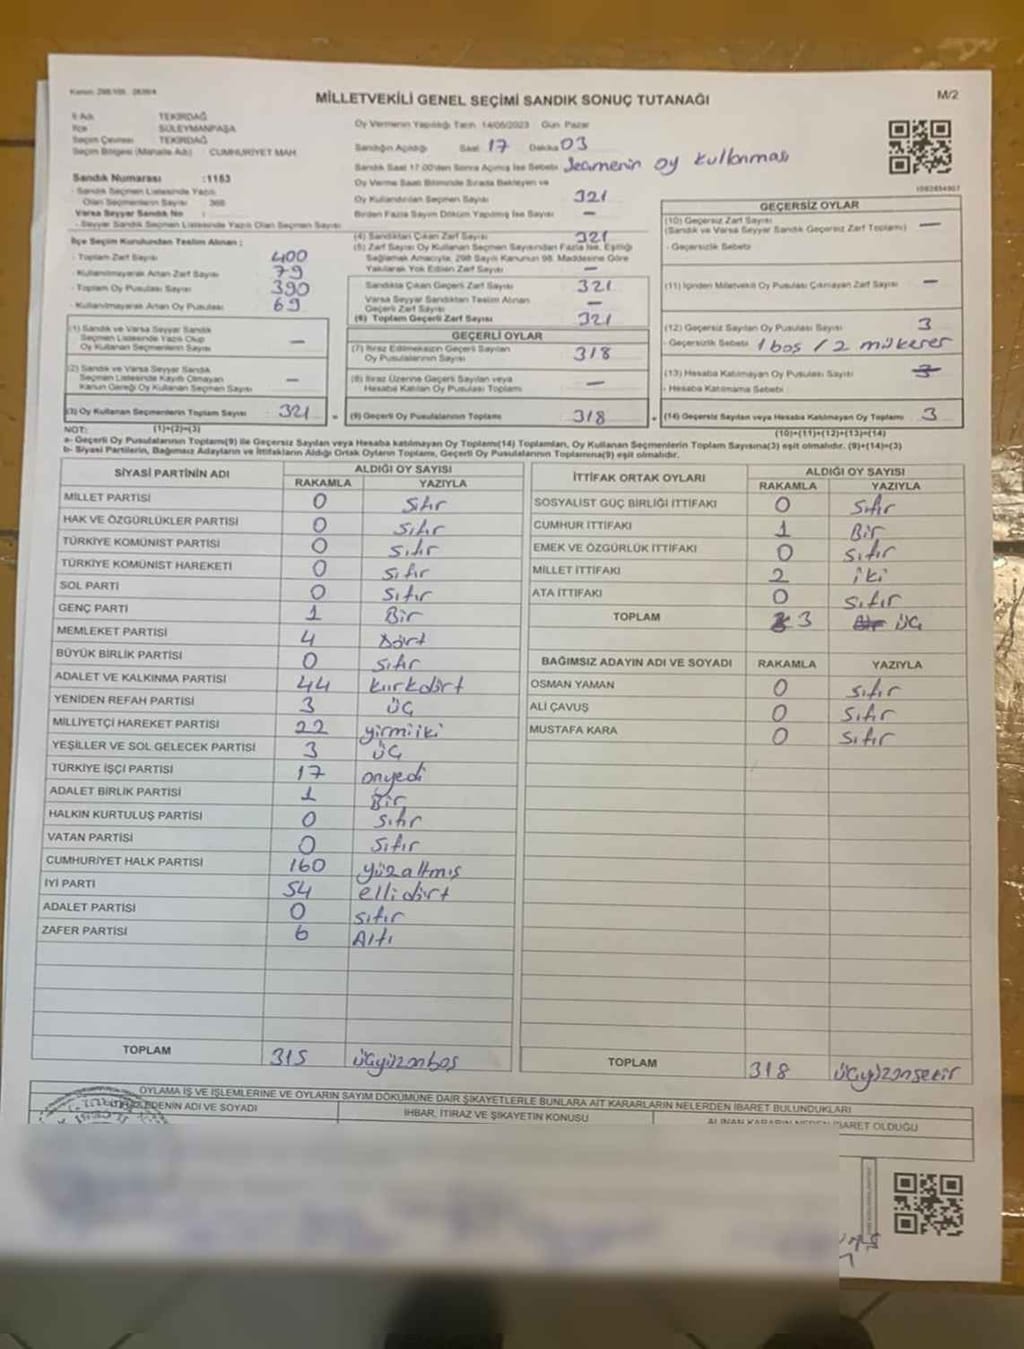 MİLLETVEKİLİ GENEL SEÇİMİ SANDIK SONUÇ TUTANAĞI
M/2
İl Adı TEKİRDAĞ
İlçe SÜLEYMANPAŞA
Seçim Çevresi TEKİRDAĞ
Seçim Bölgesi (Mahalle Adı) : CUMHURİYET MAH
Sandık Numarası :1153
Sandık Seçmen Listesinde Yazılı
Olan Seçmen Sayısı
Varsa Seyyar Sandık No :
Seyyar Sandık Seçmen Listesinde Yazılı Olan Seçmen Sayısı
İlçe Seçim Kurulundan Teslim Alınan :
- Toplam Zarf Sayısı 400
- Kullanılmayarak Artan Zarf Sayısı 79
- Toplam Oy Pusulası Sayısı 390
- Kullanılmayarak Artan Oy Pusulası 69
(1) Sandık ve Varsa Seyyar Sandık
Seçmen Listesinde Yazılı Olup
Oy Kullanan Seçmenlerin Sayısı —
(2) Sandık ve Varsa Seyyar Sandık
Seçmen Listesinde Kayıtlı Olmayan
Kanun Gereği Oy Kullanan Seçmen Sayısı —
(3) Oy Kullanan Seçmenlerin Toplam Sayısı 321
Oy Vermenin Yapıldığı Tarih 14/05/2023 Gün Pazar
Sandığın Açıldığı Saat 17 Dakika 03
Sandık Saat 17.00'den Sonra Açılmış İse Sebebi Seçmenin oy kullanması
Oy Verme Saati Bitiminde Sırada Bekleyen ve
Oy Kullandırılan Seçmen Sayısı 321
Birden Fazla Sayım Döküm Yapılmış İse Sayısı —
(4) Sandıktan Çıkan Zarf Sayısı 321
(5) Zarf Sayısı Oy Kullanan Seçmen Sayısından Fazla İse, Eşitliği
Sağlamak Amacıyla, 298 Sayılı Kanunun 98. Maddesine Göre
Yakılarak Yok Edilen Zarf Sayısı —
Sandıkta Çıkan Geçerli Zarf Sayısı 321
Varsa Seyyar Sandıktan Teslim Alınan
Geçerli Zarf Sayısı —
(6) Toplam Geçerli Zarf Sayısı 321
GEÇERLİ OYLAR
(7) İtiraz Edilmeksizin Geçerli Sayılan
Oy Pusulalarının Sayısı 318
(8) İtiraz Üzerine Geçerli Sayılan veya
Hesaba Katılan Oy Pusulası Toplamı —
(9) Geçerli Oy Pusulalarının Toplamı 318
GEÇERSİZ OYLAR
(10) Geçersiz Zarf Sayısı
(Sandık ve Varsa Seyyar Sandık Geçersiz Zarf Toplamı) —
- Geçersizlik Sebebi
(11) İçinden Milletvekili Oy Pusulası Çıkmayan Zarf Sayısı —
(12) Geçersiz Sayılan Oy Pusulası Sayısı 3
- Geçersizlik Sebebi 1 boş / 2 mükerer
(13) Hesaba Katılmayan Oy Pusulası Sayısı
- Hesaba Katılmama Sebebi
(14) Geçersiz Sayılan veya Hesaba Katılmayan Oy Toplamı 3
NOT: (1)+(2)=(3)
(10)+(11)+(12)+(13)=(14)
a- Geçerli Oy Pusulalarının Toplamı(9) ile Geçersiz Sayılan veya Hesaba katılmayan Oy Toplamı(14) Toplamları, Oy Kullanan Seçmenlerin Toplam Sayısına(3) eşit olmalıdır. (9)+(14)=(3)
b- Siyasi Partilerin, Bağımsız Adayların ve İttifakların Aldığı Ortak Oyların Toplamı, Geçerli Oy Pusulalarının Toplamına(9) eşit olmalıdır.
SİYASİ PARTİNİN ADI ALDIĞI OY SAYISI
RAKAMLA YAZIYLA
MİLLET PARTİSİ 0 Sıfır
HAK VE ÖZGÜRLÜKLER PARTİSİ 0 Sıfır
TÜRKİYE KOMÜNİST PARTİSİ 0 Sıfır
TÜRKİYE KOMÜNİST HAREKETİ 0 Sıfır
SOL PARTİ 0 Sıfır
GENÇ PARTİ 1 Bir
MEMLEKET PARTİSİ 4 Dört
BÜYÜK BİRLİK PARTİSİ 0 Sıfır
ADALET VE KALKINMA PARTİSİ 44 kırkdört
YENİDEN REFAH PARTİSİ 3 üç
MİLLİYETÇİ HAREKET PARTİSİ 22 yirmiiki
YEŞİLLER VE SOL GELECEK PARTİSİ 3 üç
TÜRKİYE İŞÇİ PARTİSİ 17 onyedi
ADALET BİRLİK PARTİSİ 1 Bir
HALKIN KURTULUŞ PARTİSİ 0 Sıfır
VATAN PARTİSİ 0 Sıfır
CUMHURİYET HALK PARTİSİ 160 yüzaltmış
İYİ PARTİ 54 ellidört
ADALET PARTİSİ 0 sıfır
ZAFER PARTİSİ 6 Altı
TOPLAM 315 üçyüzonbeş
İTTİFAK ORTAK OYLARI ALDIĞI OY SAYISI
RAKAMLA YAZIYLA
SOSYALİST GÜÇ BİRLİĞİ İTTİFAKI 0 Sıfır
CUMHUR İTTİFAKI 1 Bir
EMEK VE ÖZGÜRLÜK İTTİFAKI 0 Sıfır
MİLLET İTTİFAKI 2 iki
ATA İTTİFAKI 0 Sıfır
TOPLAM 3 üç
BAĞIMSIZ ADAYIN ADI VE SOYADI RAKAMLA YAZIYLA
OSMAN YAMAN 0 sıfır
ALİ ÇAVUŞ 0 Sıfır
MUSTAFA KARA 0 Sıfır
TOPLAM 318 üçyüzonsekiz
OYLAMA İŞ VE İŞLEMLERİNE VE OYLARIN SAYIM DÖKÜMÜNE DAİR ŞİKAYETLERLE BUNLARA AİT KARARLARIN NELERDEN İBARET BULUNDUKLARI
ADI VE SOYADI
İHBAR, İTİRAZ VE ŞİKAYETİN KONUSU
İBARET OLDUĞU